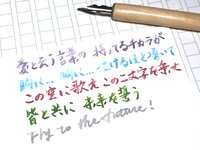 愛と云う言葉の 持ってるチカラが
胸に… 胸に… こみあげるほど 響いて
この空に歌え この二文字を乗せ
皆と共に 未来を誓う
Fly to the future!